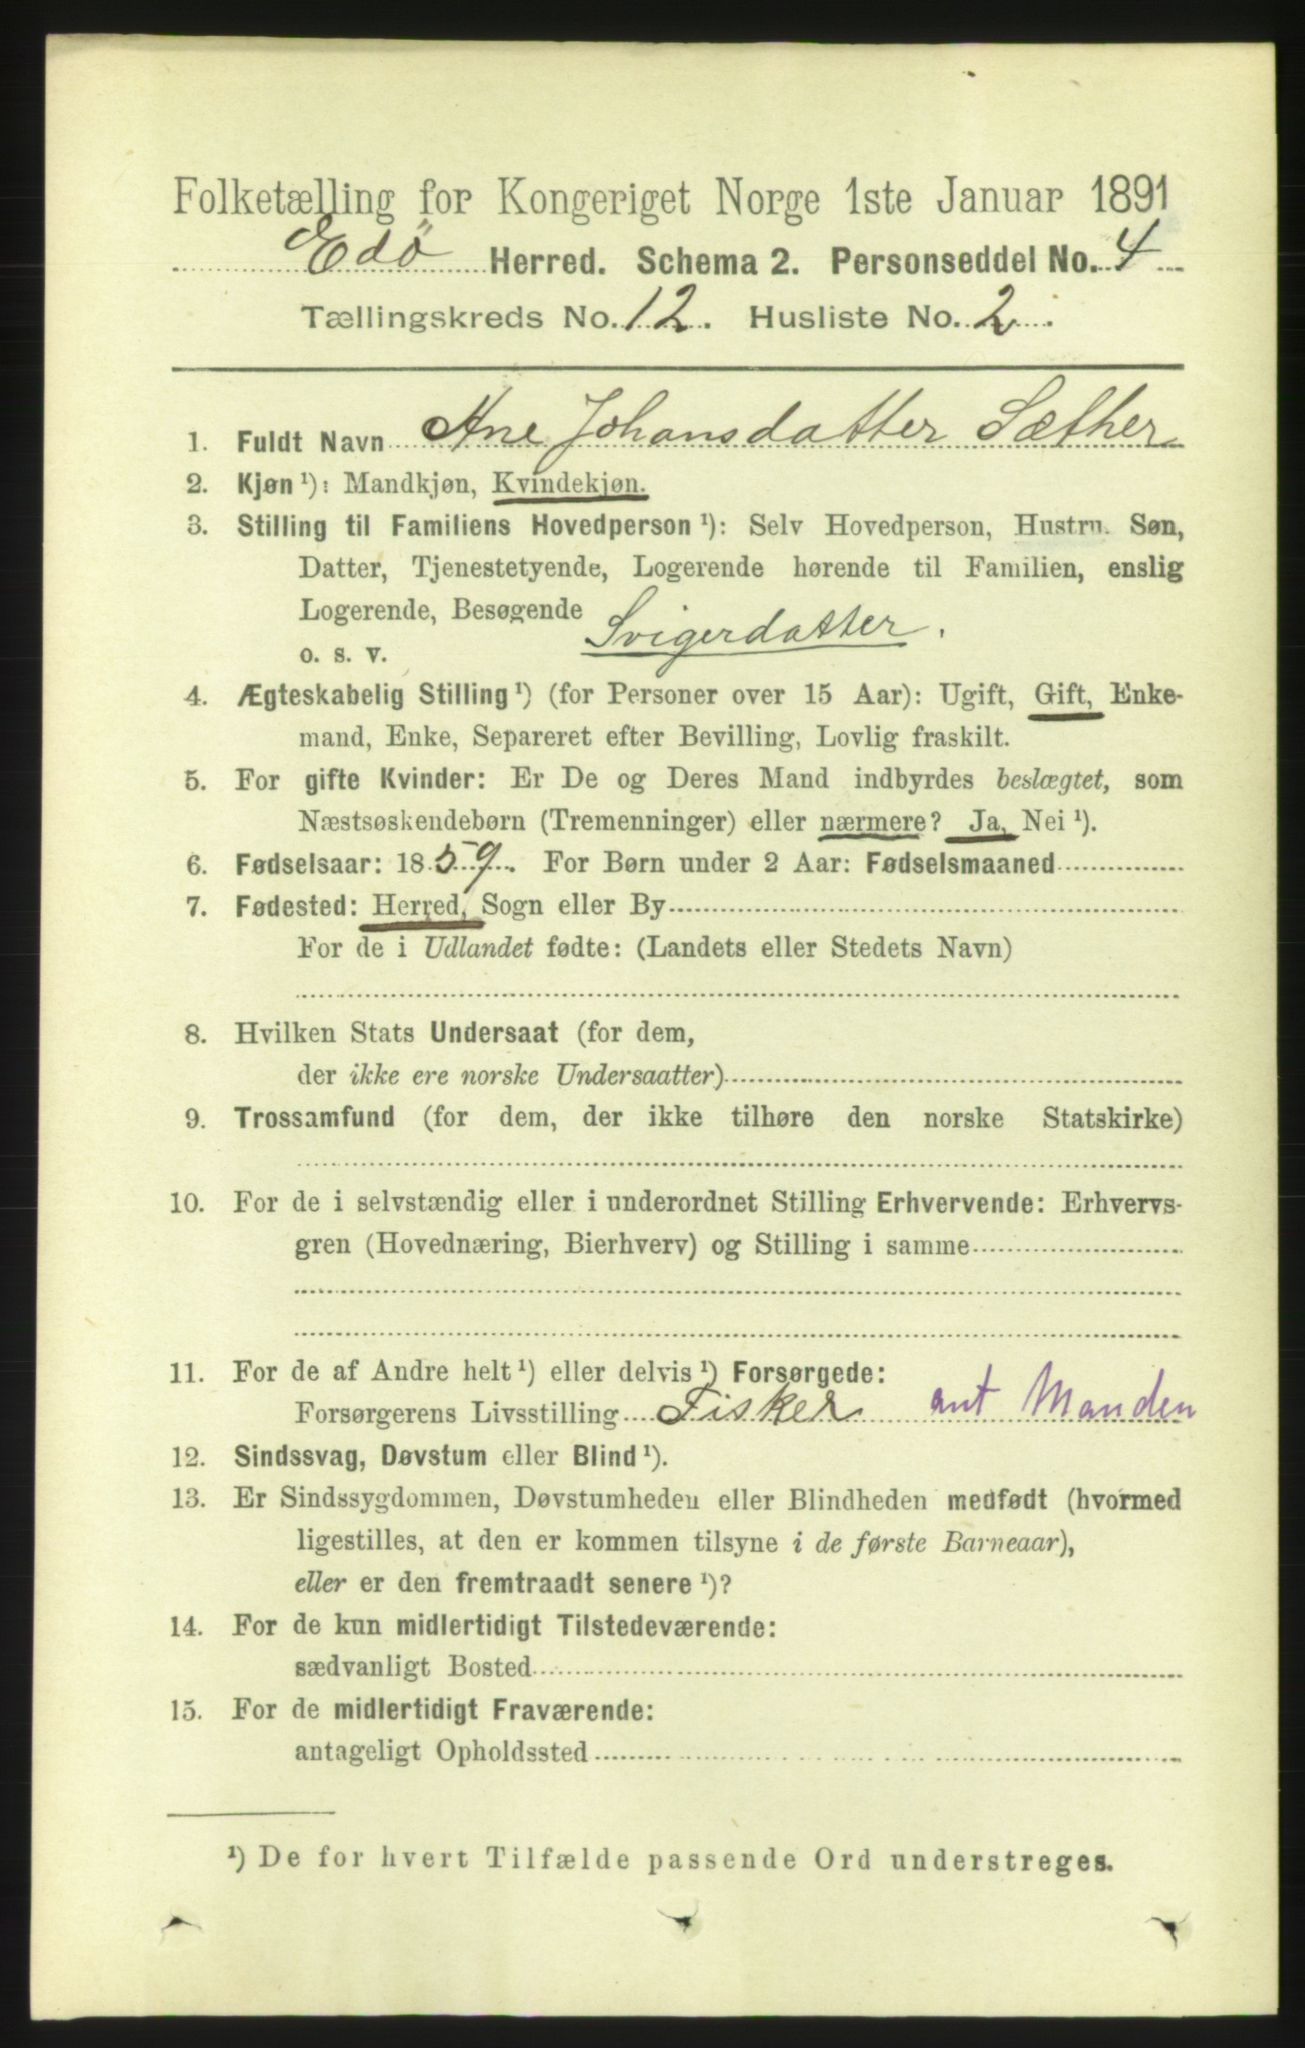 Folketælling for Kongeriget Norge 1ste Januar 1891
Edö Herred. Schema 2. Personseddel No. 4
Tællingskreds No. 12. Husliste No. 2.
1. Fuldt Navn Ane Johansdatter Sæther
2. Kjøn ¹): Mandkjøn, Kvindekjøn.
3. Stilling til Familiens Hovedperson ¹): Selv Hovedperson, Hustru. Søn,
Datter, Tjenestetyende, Logerende hørende til Familien, enslig
Logerende, Besøgende
o. s. v. Svigerdatter.
4. Ægteskabelig Stilling ¹) (for Personer over 15 Aar): Ugift, Gift, Enke-
mand, Enke, Separeret efter Bevilling, Lovlig fraskilt.
5. For gifte Kvinder: Er De og Deres Mand indbyrdes beslægtet, som
Næstsøskendebørn (Tremenninger) eller nærmere? Ja, Nei ¹).
6. Fødselsaar: 1859. For Børn under 2 Aar: Fødselsmaaned
7. Fødested: Herred, Sogn eller By
For de i Udlandet fødte: (Landets eller Stedets Navn)
8. Hvilken Stats Undersaat (for dem,
der ikke ere norske Undersaatter)
9. Trossamfund (for dem, der ikke tilhøre den norske Statskirke)
10. For de i selvstændig eller i underordnet Stilling Erhvervende: Erhvervs-
gren (Hovednæring, Bierhverv) og Stilling i samme
11. For de af Andre helt ¹) eller delvis ¹) Forsørgede:
Forsørgerens Livsstilling Fisker ant Manden
12. Sindssvag, Døvstum eller Blind ¹).
13. Er Sindssygdommen, Døvstumheden eller Blindheden medfødt (hvormed
ligestilles, at den er kommen tilsyne i de første Barneaar),
eller er den fremtraadt senere ¹)?
14. For de kun midlertidigt Tilstedeværende:
sædvanligt Bosted
15. For de midlertidigt Fraværende:
antageligt Opholdssted
¹) De for hvert Tilfælde passende Ord understreges.